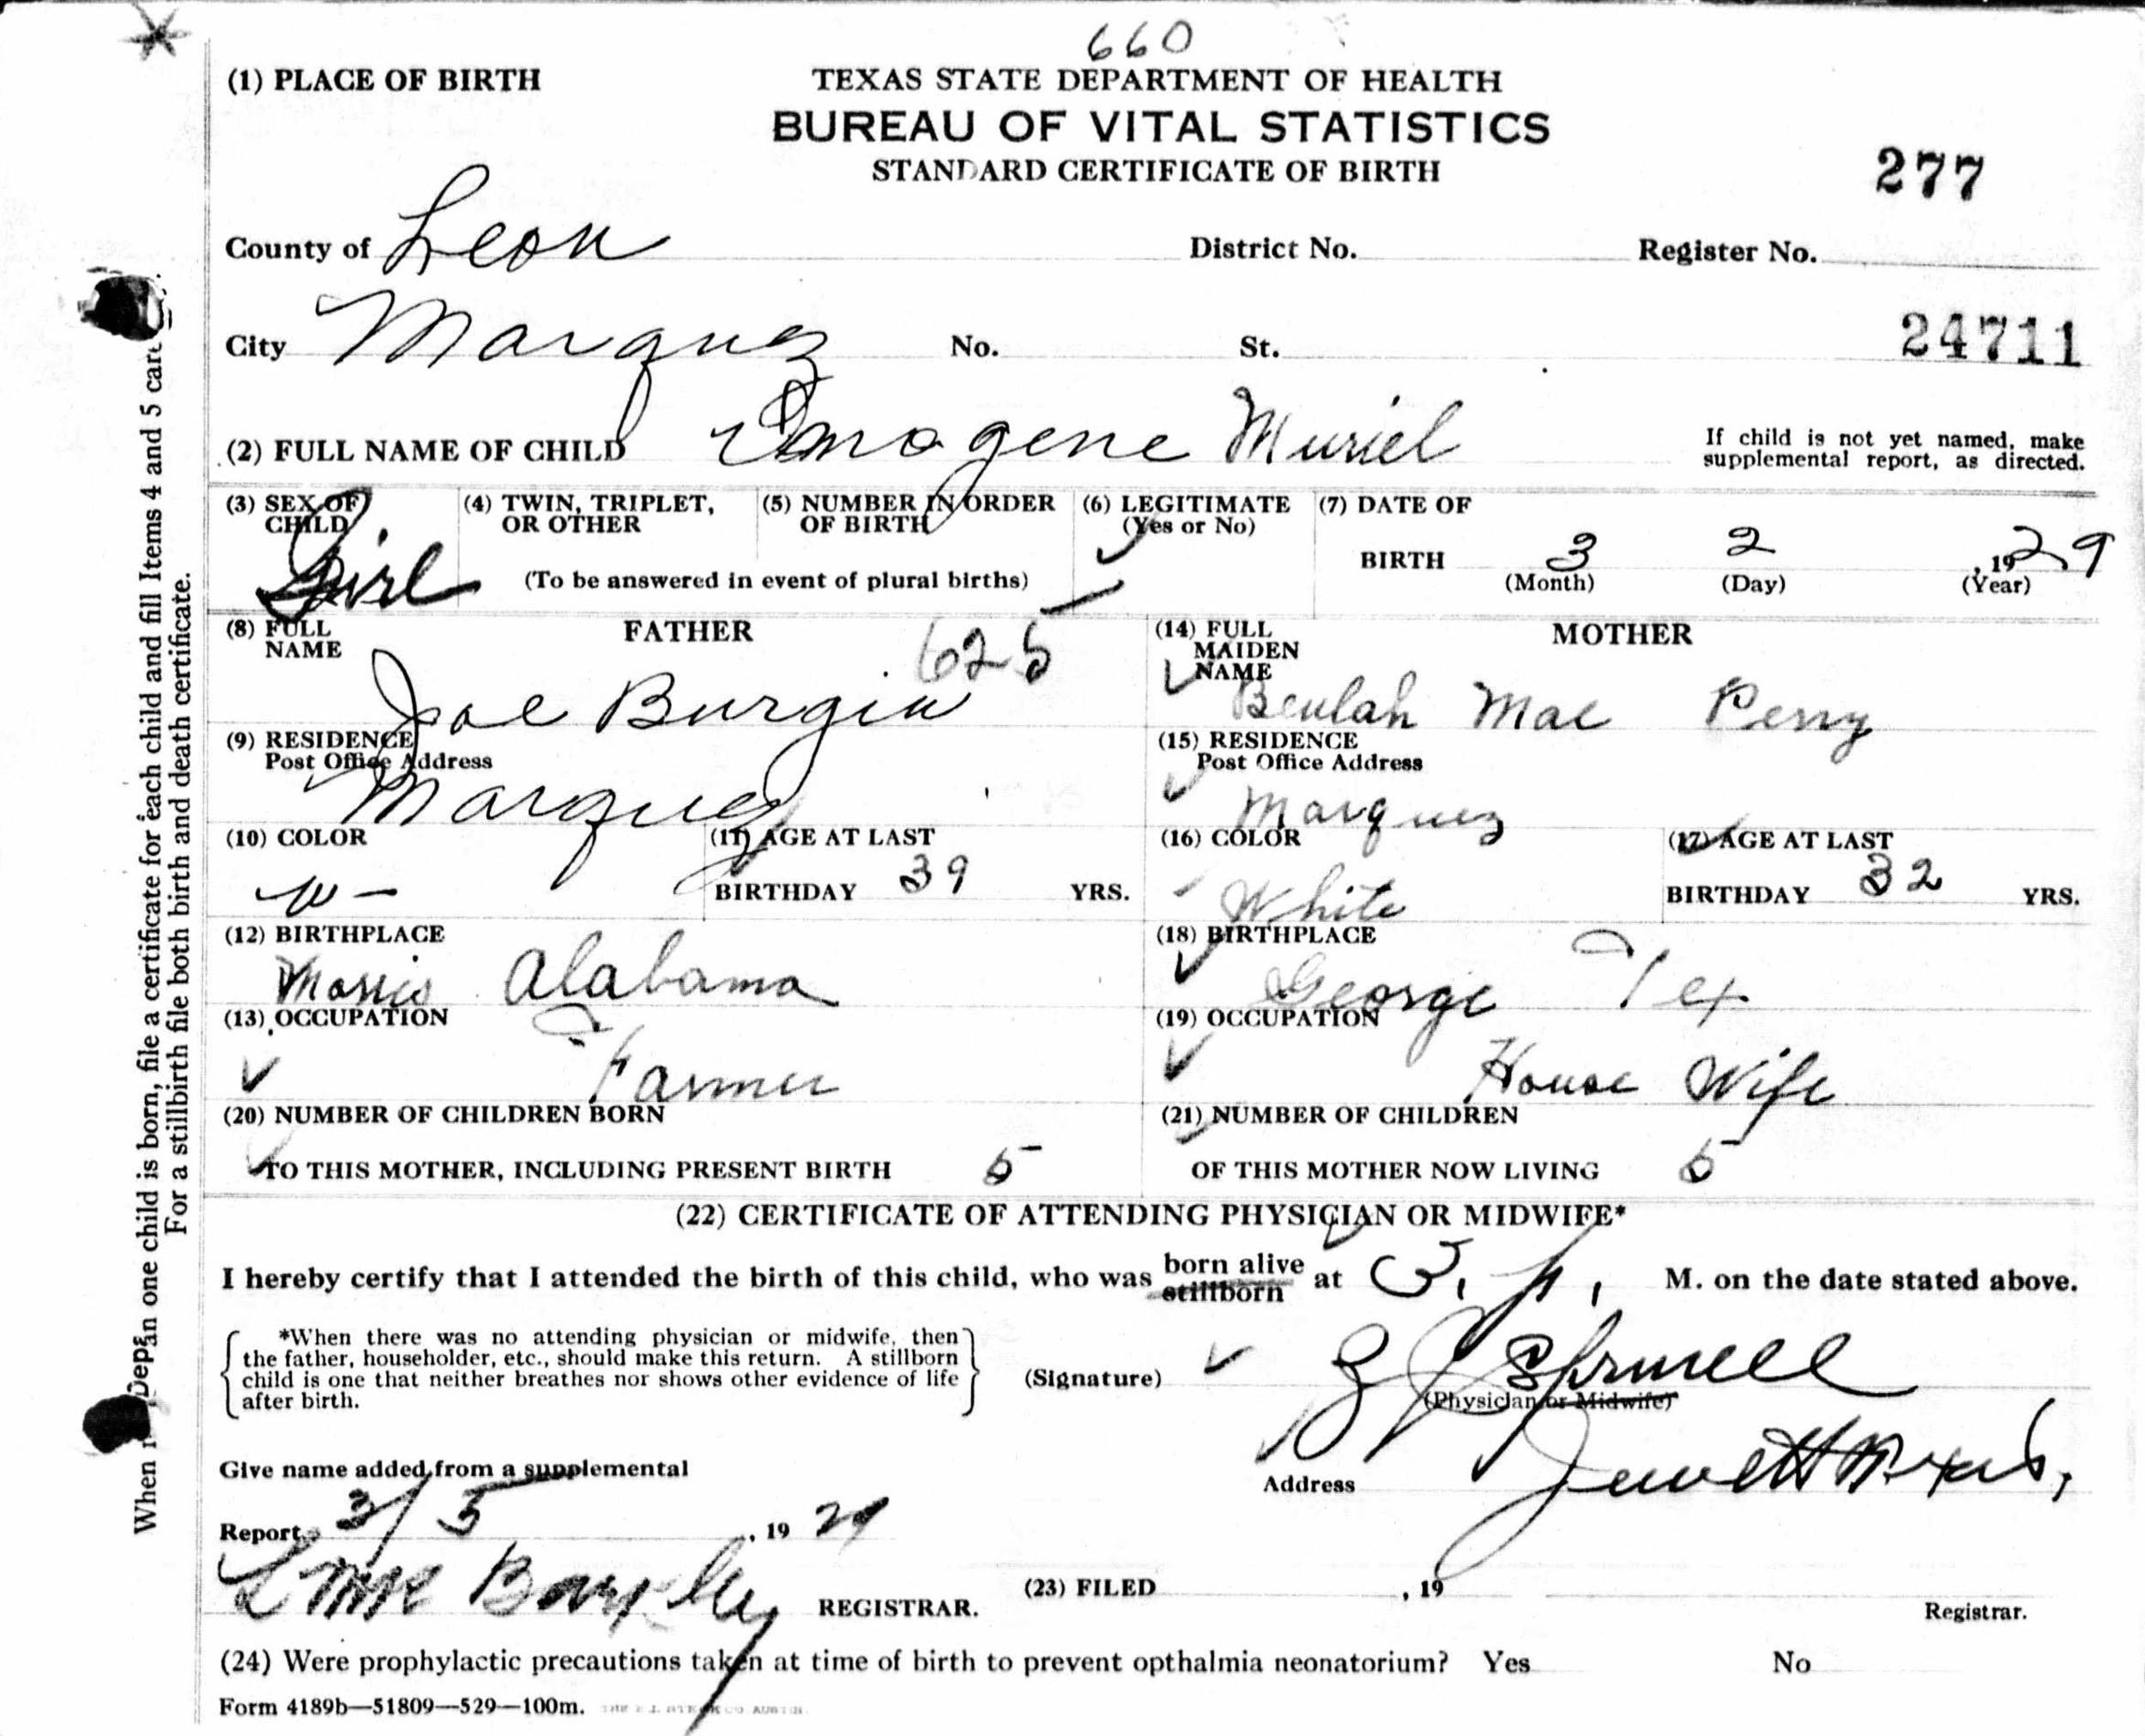 660
(1) PLACE OF BIRTH
TEXAS STATE DEPARTMENT OF HEALTH
BUREAU OF VITAL STATISTICS
STANDARD CERTIFICATE OF BIRTH
277
County of Leon District No. Register No.
City Marquez No. St. 24711
(2) FULL NAME OF CHILD Imogene Muriel
If child is not yet named, make
supplemental report, as directed.
(3) SEX OF
CHILD
Girl
(4) TWIN, TRIPLET,
OR OTHER
(5) NUMBER IN ORDER
OF BIRTH
(To be answered in event of plural births)
(6) LEGITIMATE
(Yes or No)
(7) DATE OF
BIRTH 3 2 , 1929
(Month) (Day) (Year)
(8) FULL
NAME
FATHER 625
Joe Burgin
(14) FULL
MAIDEN
NAME
MOTHER
Beulah Mae Perry
(9) RESIDENCE
Post Office Address
Marquez
(15) RESIDENCE
Post Office Address
Marquez
(10) COLOR
W –
(11) AGE AT LAST
BIRTHDAY 39 YRS.
(16) COLOR
White
(17) AGE AT LAST
BIRTHDAY 32 YRS.
(12) BIRTHPLACE
Morris Alabama
(18) BIRTHPLACE
George Tex
(13) OCCUPATION
Farmer
(19) OCCUPATION
House Wife
(20) NUMBER OF CHILDREN BORN
TO THIS MOTHER, INCLUDING PRESENT BIRTH 5
(21) NUMBER OF CHILDREN
OF THIS MOTHER NOW LIVING 5
(22) CERTIFICATE OF ATTENDING PHYSICIAN OR MIDWIFE*
I hereby certify that I attended the birth of this child, who was born alive stillborn at 3. p. M. on the date stated above.
*When there was no attending physician or midwife, then
the father, householder, etc., should make this return. A stillborn
child is one that neither breathes nor shows other evidence of life
after birth.
(Signature)
(Physician or Midwife)
Address Jewett Texas,
Give name added from a supplemental
Report 3/5, 1929
REGISTRAR.
(23) FILED , 19
Registrar.
(24) Were prophylactic precautions taken at time of birth to prevent opthalmia neonatorium? Yes No
Form 4189b—51809—529—100m.
one child is born, file a certificate for each child and fill Items 4 and 5
For a stillbirth file both birth and death certificate.